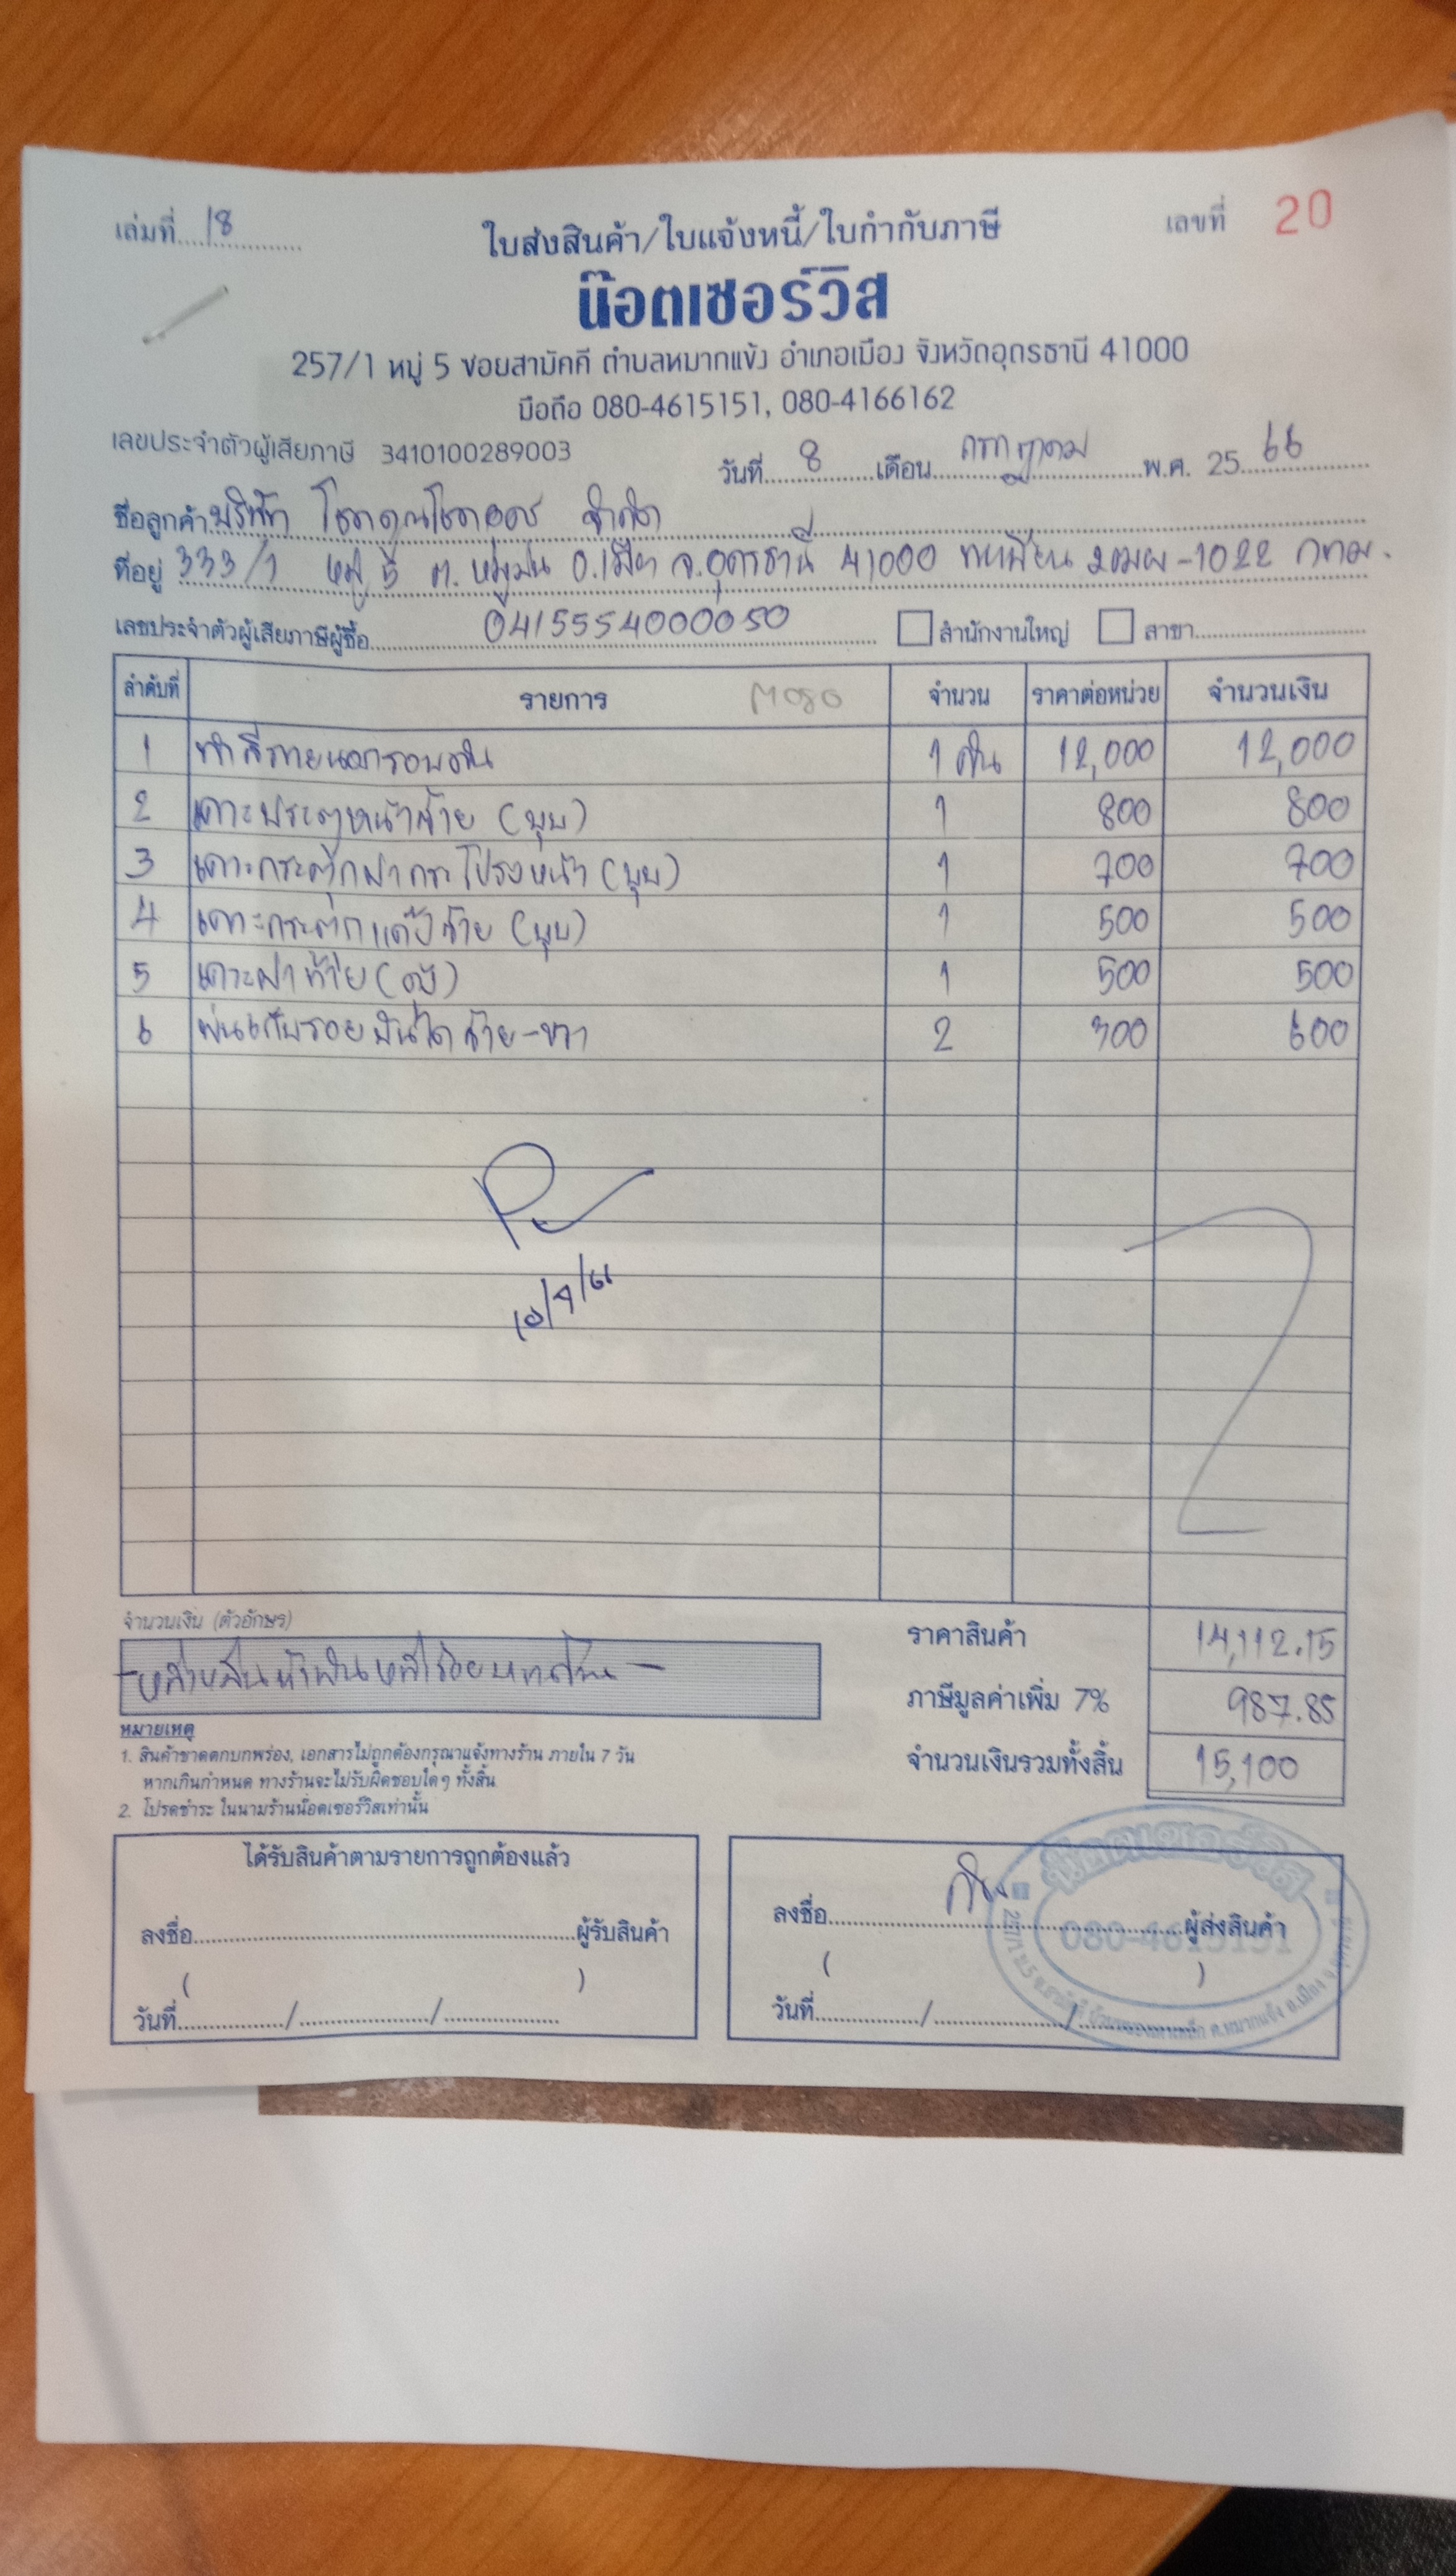 เล่มที่ 18
ใบส่งสินค้า/ใบแจ้งหนี้/ใบกำกับภาษี
เลขที่ 20
น๊อตเซอร์วิส
257/1 หมู่ 5 ซอยสามัคคี ตำบลหมากแข้ง อำเภอเมือง จังหวัดอุดรธานี 41000
มือถือ 080-4615151, 080-4166162
เลขประจำตัวผู้เสียภาษี 3410100289003
วันที่ 8 เดือน กรกฎาคม พ.ศ. 25 66
ชื่อลูกค้า บริษัท จำกัด
ที่อยู่ 333/1 หมู่ 5 ต.หมูม่น อ.เมือง จ.อุดรธานี 41000 ทะเบียน 2ฒผ-1022 กทม.
เลขประจำตัวผู้เสียภาษีผู้ซื้อ 0415554000050 สำนักงานใหญ่ สาขา
ลำดับที่ รายการ M080 จำนวน ราคาต่อหน่วย จำนวนเงิน
1 ทำสีภายนอกรอบคัน 1 คัน 12,000 12,000
2 เคาะประตูหน้าซ้าย (บุบ) 1 800 800
3 เคาะกระตุกฝากระโปรงหน้า (บุบ) 1 700 700
4 เคาะกระตุกแค๊ปซ้าย (บุบ) 1 500 500
5 เคาะฝาท้าย 1 500 500
6 พ่นเก็บรอยบันได ซ้าย-ขวา 2 300 600
10/7/66
จำนวนเงิน (ตัวอักษร)
-หนึ่งหมื่นห้าพันหนึ่งร้อยบาทถ้วน-
ราคาสินค้า 14,112.15
ภาษีมูลค่าเพิ่ม 7% 987.85
จำนวนเงินรวมทั้งสิ้น 15,100
หมายเหตุ
1. สินค้าขาดตกบกพร่อง, เอกสารไม่ถูกต้องกรุณาแจ้งทางร้าน ภายใน 7 วัน
หากเกินกำหนด ทางร้านจะไม่รับผิดชอบใดๆ ทั้งสิ้น
2. โปรดชำระ ในนามร้านน๊อตเซอร์วิสเท่านั้น
ได้รับสินค้าตามรายการถูกต้องแล้ว
ลงชื่อ ผู้รับสินค้า
( )
วันที่ / /
ลงชื่อ ผู้ส่งสินค้า
( )
วันที่ / /
น๊อตเซอร์วิส
080-4615151